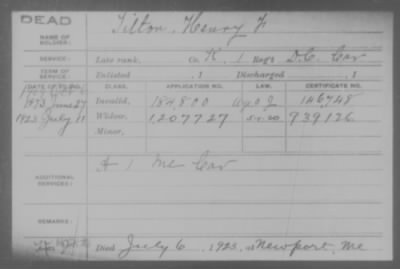 DEAD
NAME OF SOLDIER: Tilton, Henry F
SERVICE: Late rank, Co. K, 1 Reg't D.C. Cav
TERM OF SERVICE: Enlisted , 1 Discharged , 1
DATE OF FILING. CLASS. APPLICATION NO. LAW. CERTIFICATE NO.
1873 June 27 Invalid, 184,800 146748
1923 July 11 Widow, 1207727 939126
Minor,
ADDITIONAL SERVICES: 1 Me Cav
REMARKS:
Died July 6, 1923, at Newport, Me